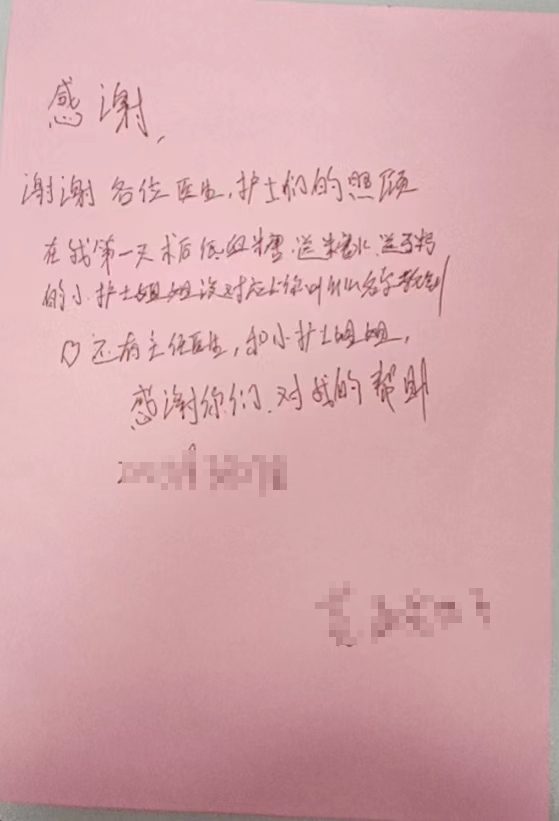 感谢,
谢谢各位医生,护士们的照顾
在我第一天术后低血糖,送糖水,送
的小护士姐姐没对应上你叫什么名字
♡还有主任医生,和小护士姐姐,
感谢你们,对我的帮助